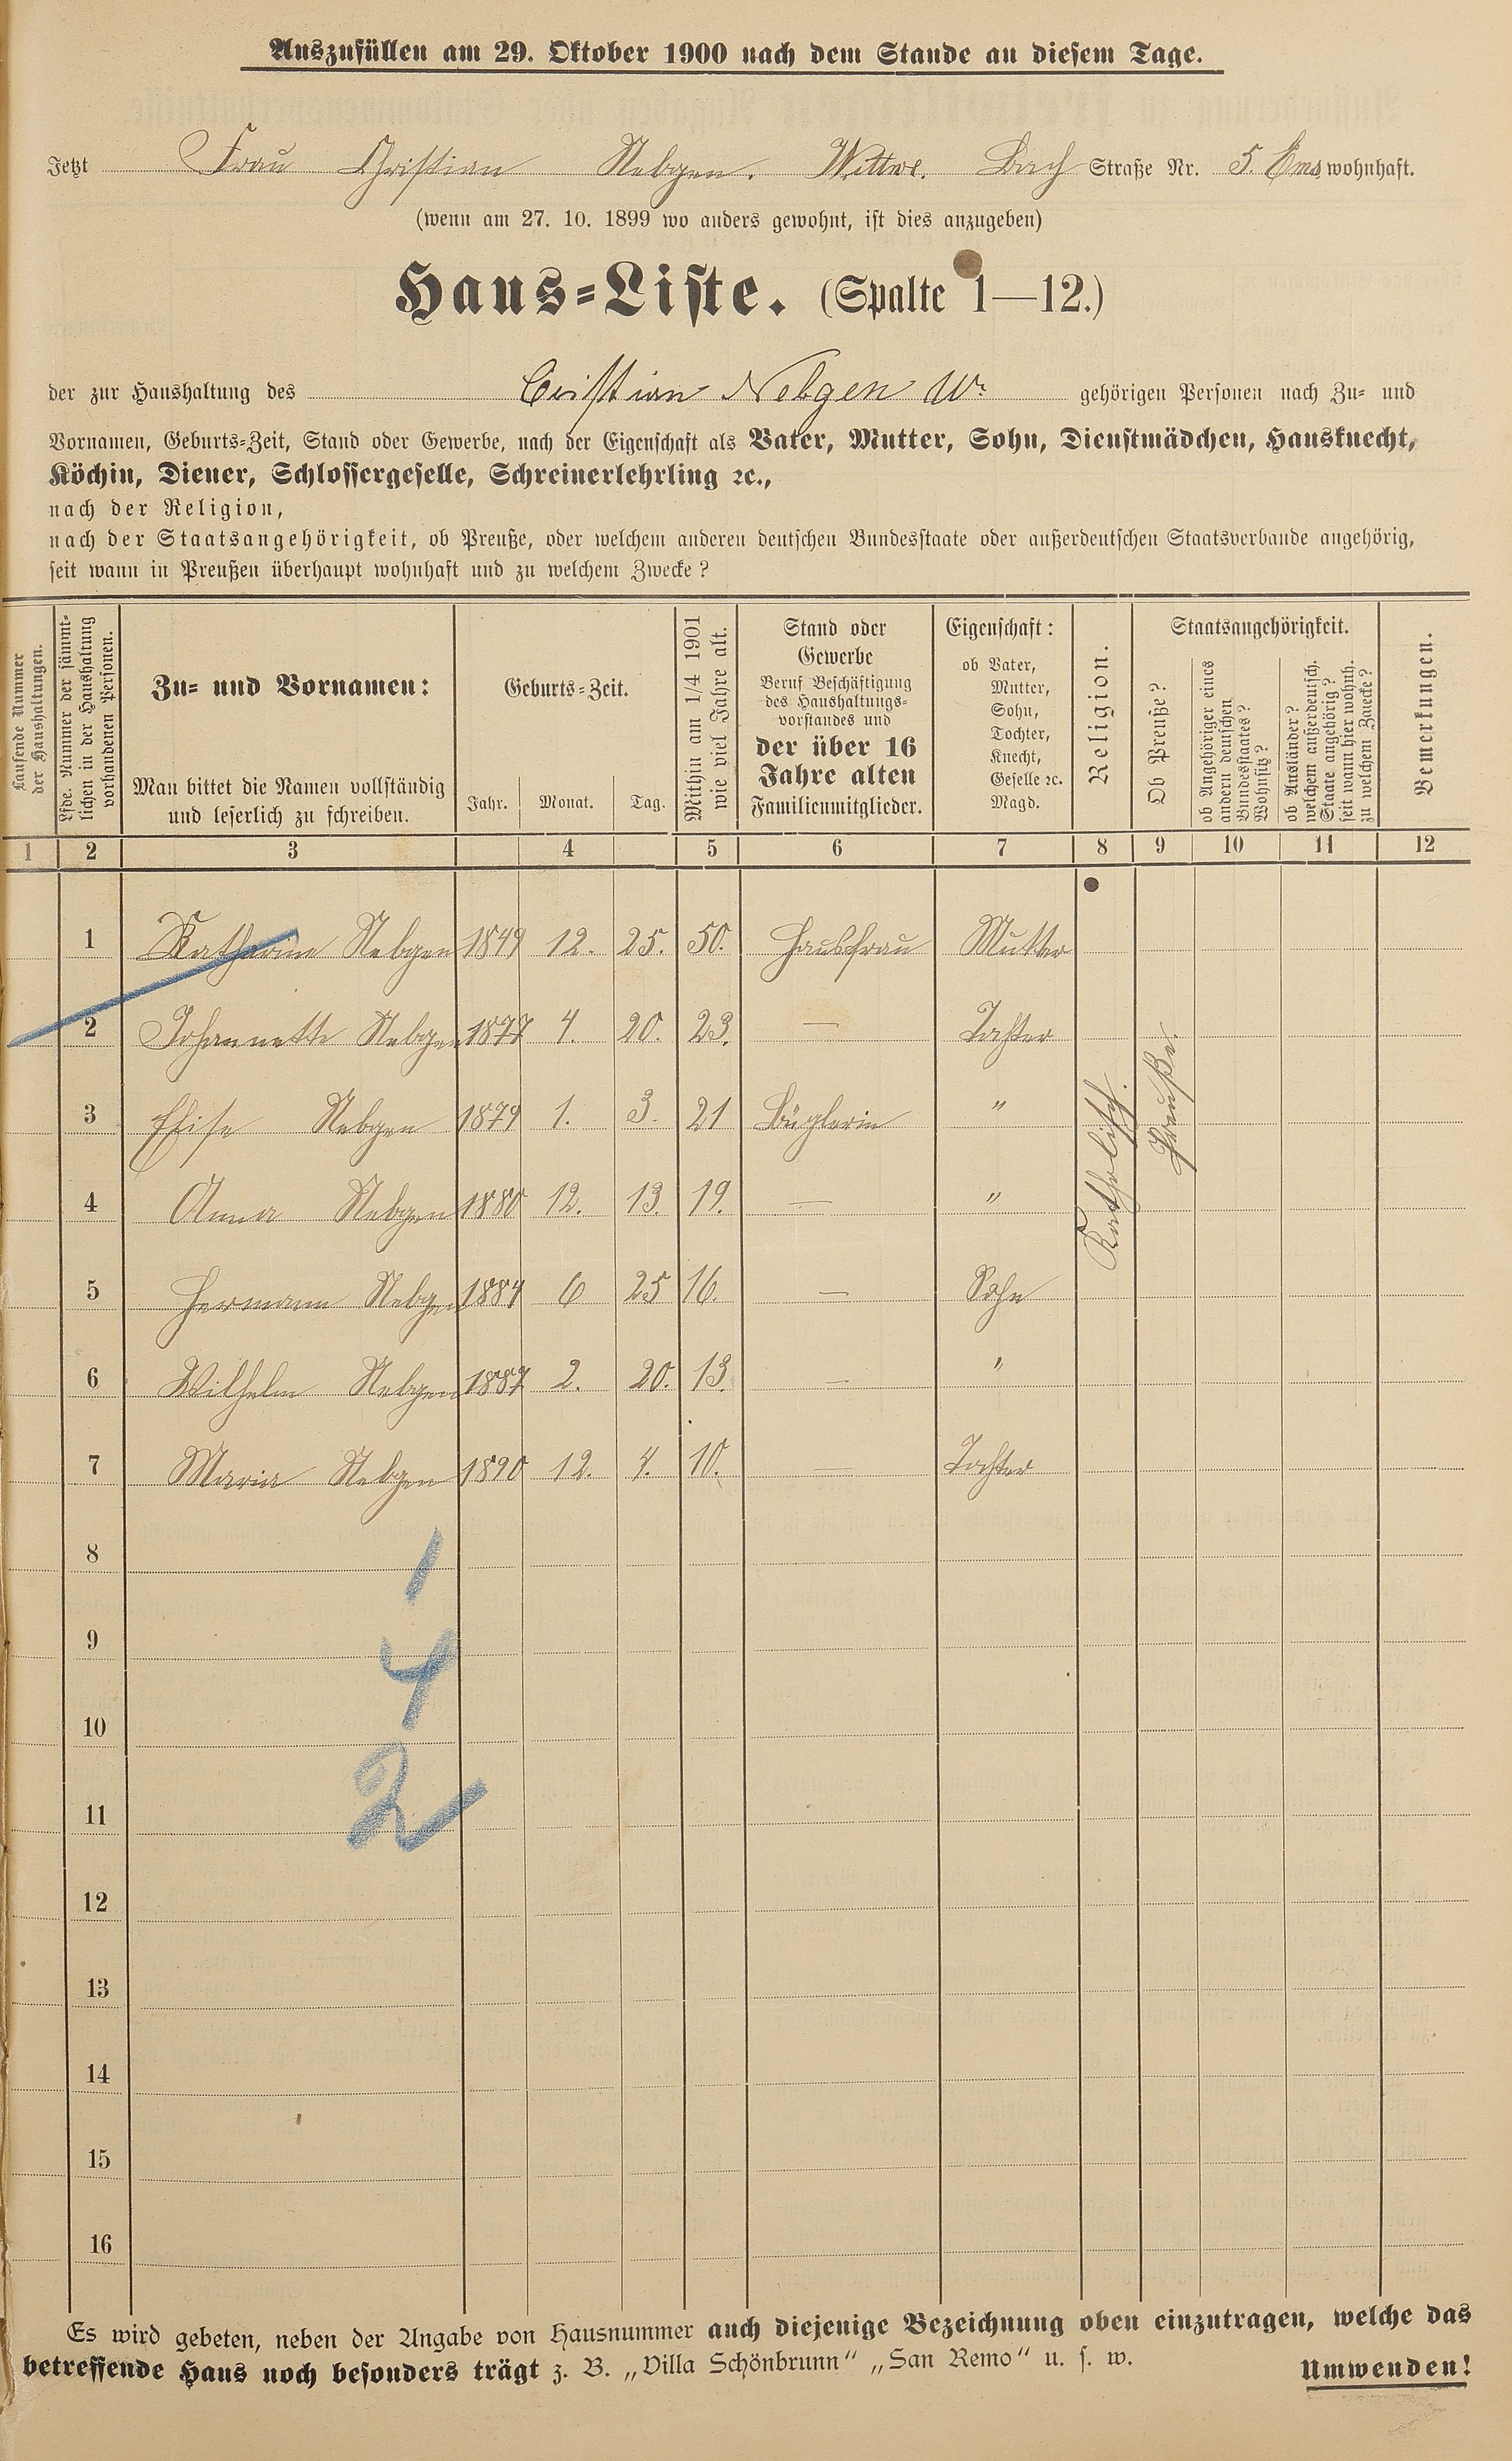 Auszufüllen am 29. Oktober 1900 nach dem Stande an diesem Tage.
Jetzt Frau Christian Nebgen. Wittwe. Bach Straße Nr. 5. Ems wohnhaft.
(wenn am 27. 10. 1899 wo anders gewohnt, ist dies anzugeben)
Haus-Liste. (Spalte 1—12.)
der zur Haushaltung des Cristian Nebgen Ww. gehörigen Personen nach Zu- und
Vornamen, Geburts-Zeit, Stand oder Gewerbe, nach der Eigenschaft als Vater, Mutter, Sohn, Dienstmädchen, Hausknecht,
Köchin, Diener, Schlossergeselle, Schreinerlehrling ꝛc.,
nach der Religion,
nach der Staatsangehörigkeit, ob Preuße, oder welchem anderen deutschen Bundesstaate oder außerdeutschen Staatsverbande angehörig,
seit wann in Preußen überhaupt wohnhaft und zu welchem Zwecke?
Laufende Nummer
der Haushaltungen.
Lfde. Nummer der sämmt-
lichen in der Haushaltung
vorhandenen Personen.
Zu- und Vornamen:
Man bittet die Namen vollständig
und leserlich zu schreiben.
Geburts-Zeit.
Jahr. Monat. Tag.
Mithin am 1/4 1901
wie viel Jahre alt.
Stand oder
Gewerbe
Beruf Beschäftigung
des Haushaltungs-
vorstandes und
der über 16
Jahre alten
Familienmitglieder.
Eigenschaft:
ob Vater,
Mutter,
Sohn,
Tochter,
Knecht,
Geselle ꝛc.
Magd.
Religion.
Staatsangehörigkeit.
Ob Preuße?
ob Angehöriger eines
andern deutschen
Bundesstaates?
Wohnsitz?
ob Ausländer?
welchem außerdeutsch.
Staate angehörig?
seit wann hier wohnh.
zu welchem Zwecke?
Bemerkungen.
1 2 3 4 5 6 7 8 9 10 11 12
1 Katharine Nebgen 1849 12. 25. 50. Hausfrau Mutter
2 Johannette Nebgen 1877 4. 20. 23. — Tochter
3 Elise Nebgen 1879 1. 3. 21 Büglerin "
4 Anna Nebgen 1880 12. 13. 19. — "
5 Hermann Nebgen 1884 6 25 16. — Sohn
6 Wilhelm Nebgen 1887 2. 20. 13. — "
7 Maria Nebgen 1890 12. 4. 10. — Tochter
Katholisch.
Preuße.
8
1
9
4
10
11
2
12
13
14
15
16
Es wird gebeten, neben der Angabe von Hausnummer auch diejenige Bezeichnung oben einzutragen, welche das
betreffende Haus noch besonders trägt z. B. „Villa Schönbrunn“ „San Remo“ u. s. w.
Umwenden!